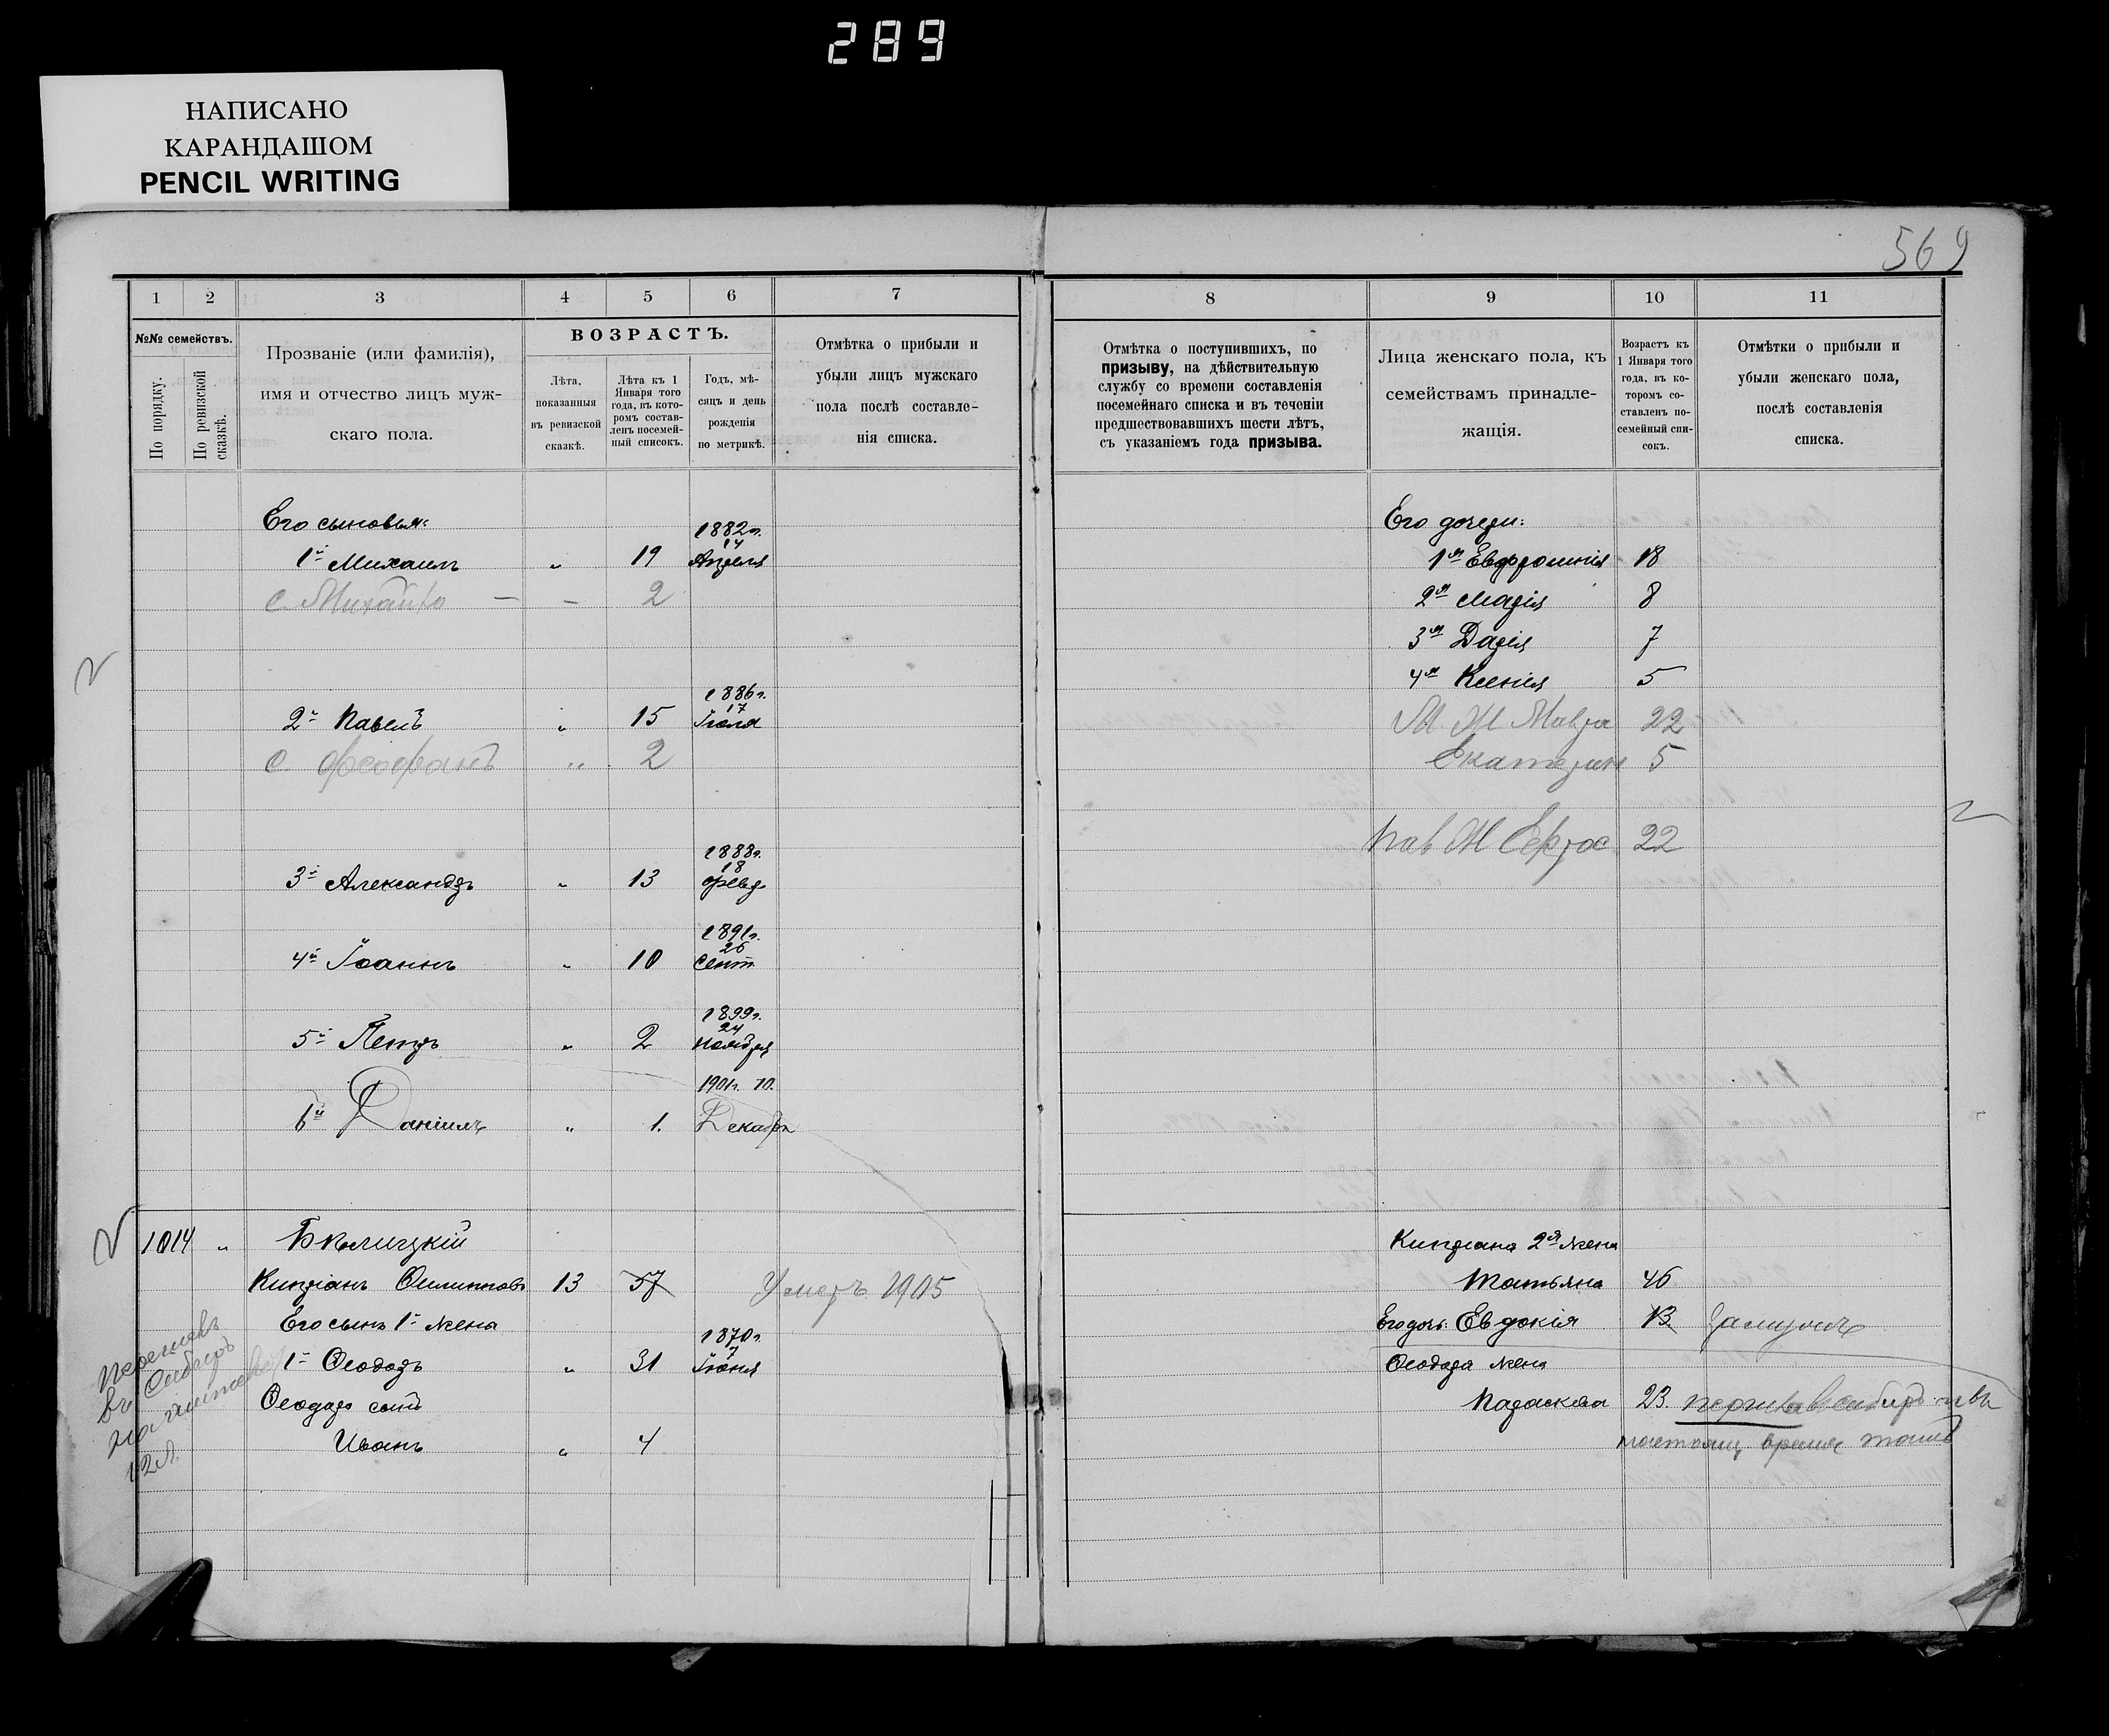 289
НАПИСАНО
КАРАНДАШОМ
PENCIL WRITING
569
1 2 3 4 5 6 7
№№ семействъ.
По порядку.
По ревизской сказкѣ.
Прозваніе (или фамилія),
имя и отчество лицъ муж-
скаго пола.
ВОЗРАСТЪ.
Лѣта,
показанныя
въ ревизской
сказкѣ.
Лѣта къ 1
Января того
года, въ кото-
ромъ состав-
ленъ посемей-
ный списокъ.
Годъ, мѣ-
сяцъ и день
рожденія
по метрикѣ.
Отмѣтка о прибыли и
убыли лицъ мужскаго
пола послѣ составле-
нія списка.
Его сыновья:
1882г.
1й Михаилъ „ 19 14 Апреля
с. Михайло — — 2
1886г.
2й Павелъ „ 15 17 Іюля
с. Феофанъ „ 2
1888г.
3й Александръ „ 13 18 Февр.
1891г.
4й Іоаннъ „ 10 26 Сент.
1899г.
5й Петръ „ 2 24 Ноября
1901г. 10.
6й Даніилъ „ 1. Декабря
1014 „ Бѣлицкій
Кипріанъ Филиповъ 13 57 Умеръ 1905
Его сынъ 1й жены
1870г.
1й Ѳеодоръ „ 31 7 Іюня
Ѳеодора сынъ
Иванъ „ 4
въ Сибирь
12 л.
8 9 10 11
Отмѣтка о поступившихъ, по
призыву, на дѣйствительную
службу со времени составленія
посемейнаго списка и въ теченіи
предшествовавшихъ шести лѣтъ,
съ указаніемъ года призыва.
Лица женскаго пола, къ
семействамъ принадле-
жащія.
Возрастъ къ
1 Января того
года, въ ко-
торомъ со-
ставленъ по-
семейный спи-
сокъ.
Отмѣтки о прибыли и
убыли женскаго пола,
послѣ составленія
списка.
Его дочери:
1я Евфросинія 18
2я Марія 8
3я Дарія 7
4я Ксенія 5
М. Ж Мавра 22
Екатерин 5
Пав Ж Ефрос 22
Кипріана 2я жена
Татьяна 46
Его дочь Евдокія 13. Замужем
Ѳеодора жена
Параскева 23. въ Сибирь и въ
настоящ время тамъ